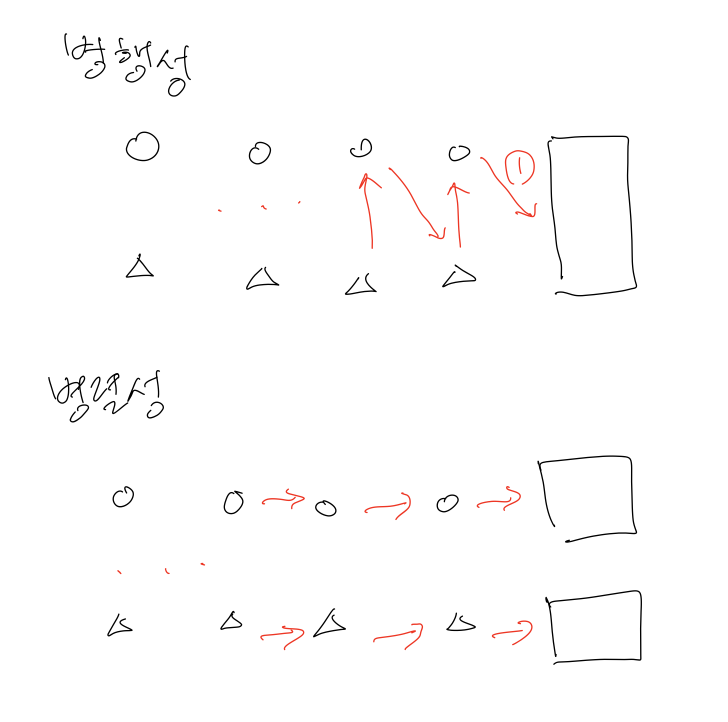 병행성
1
병렬성